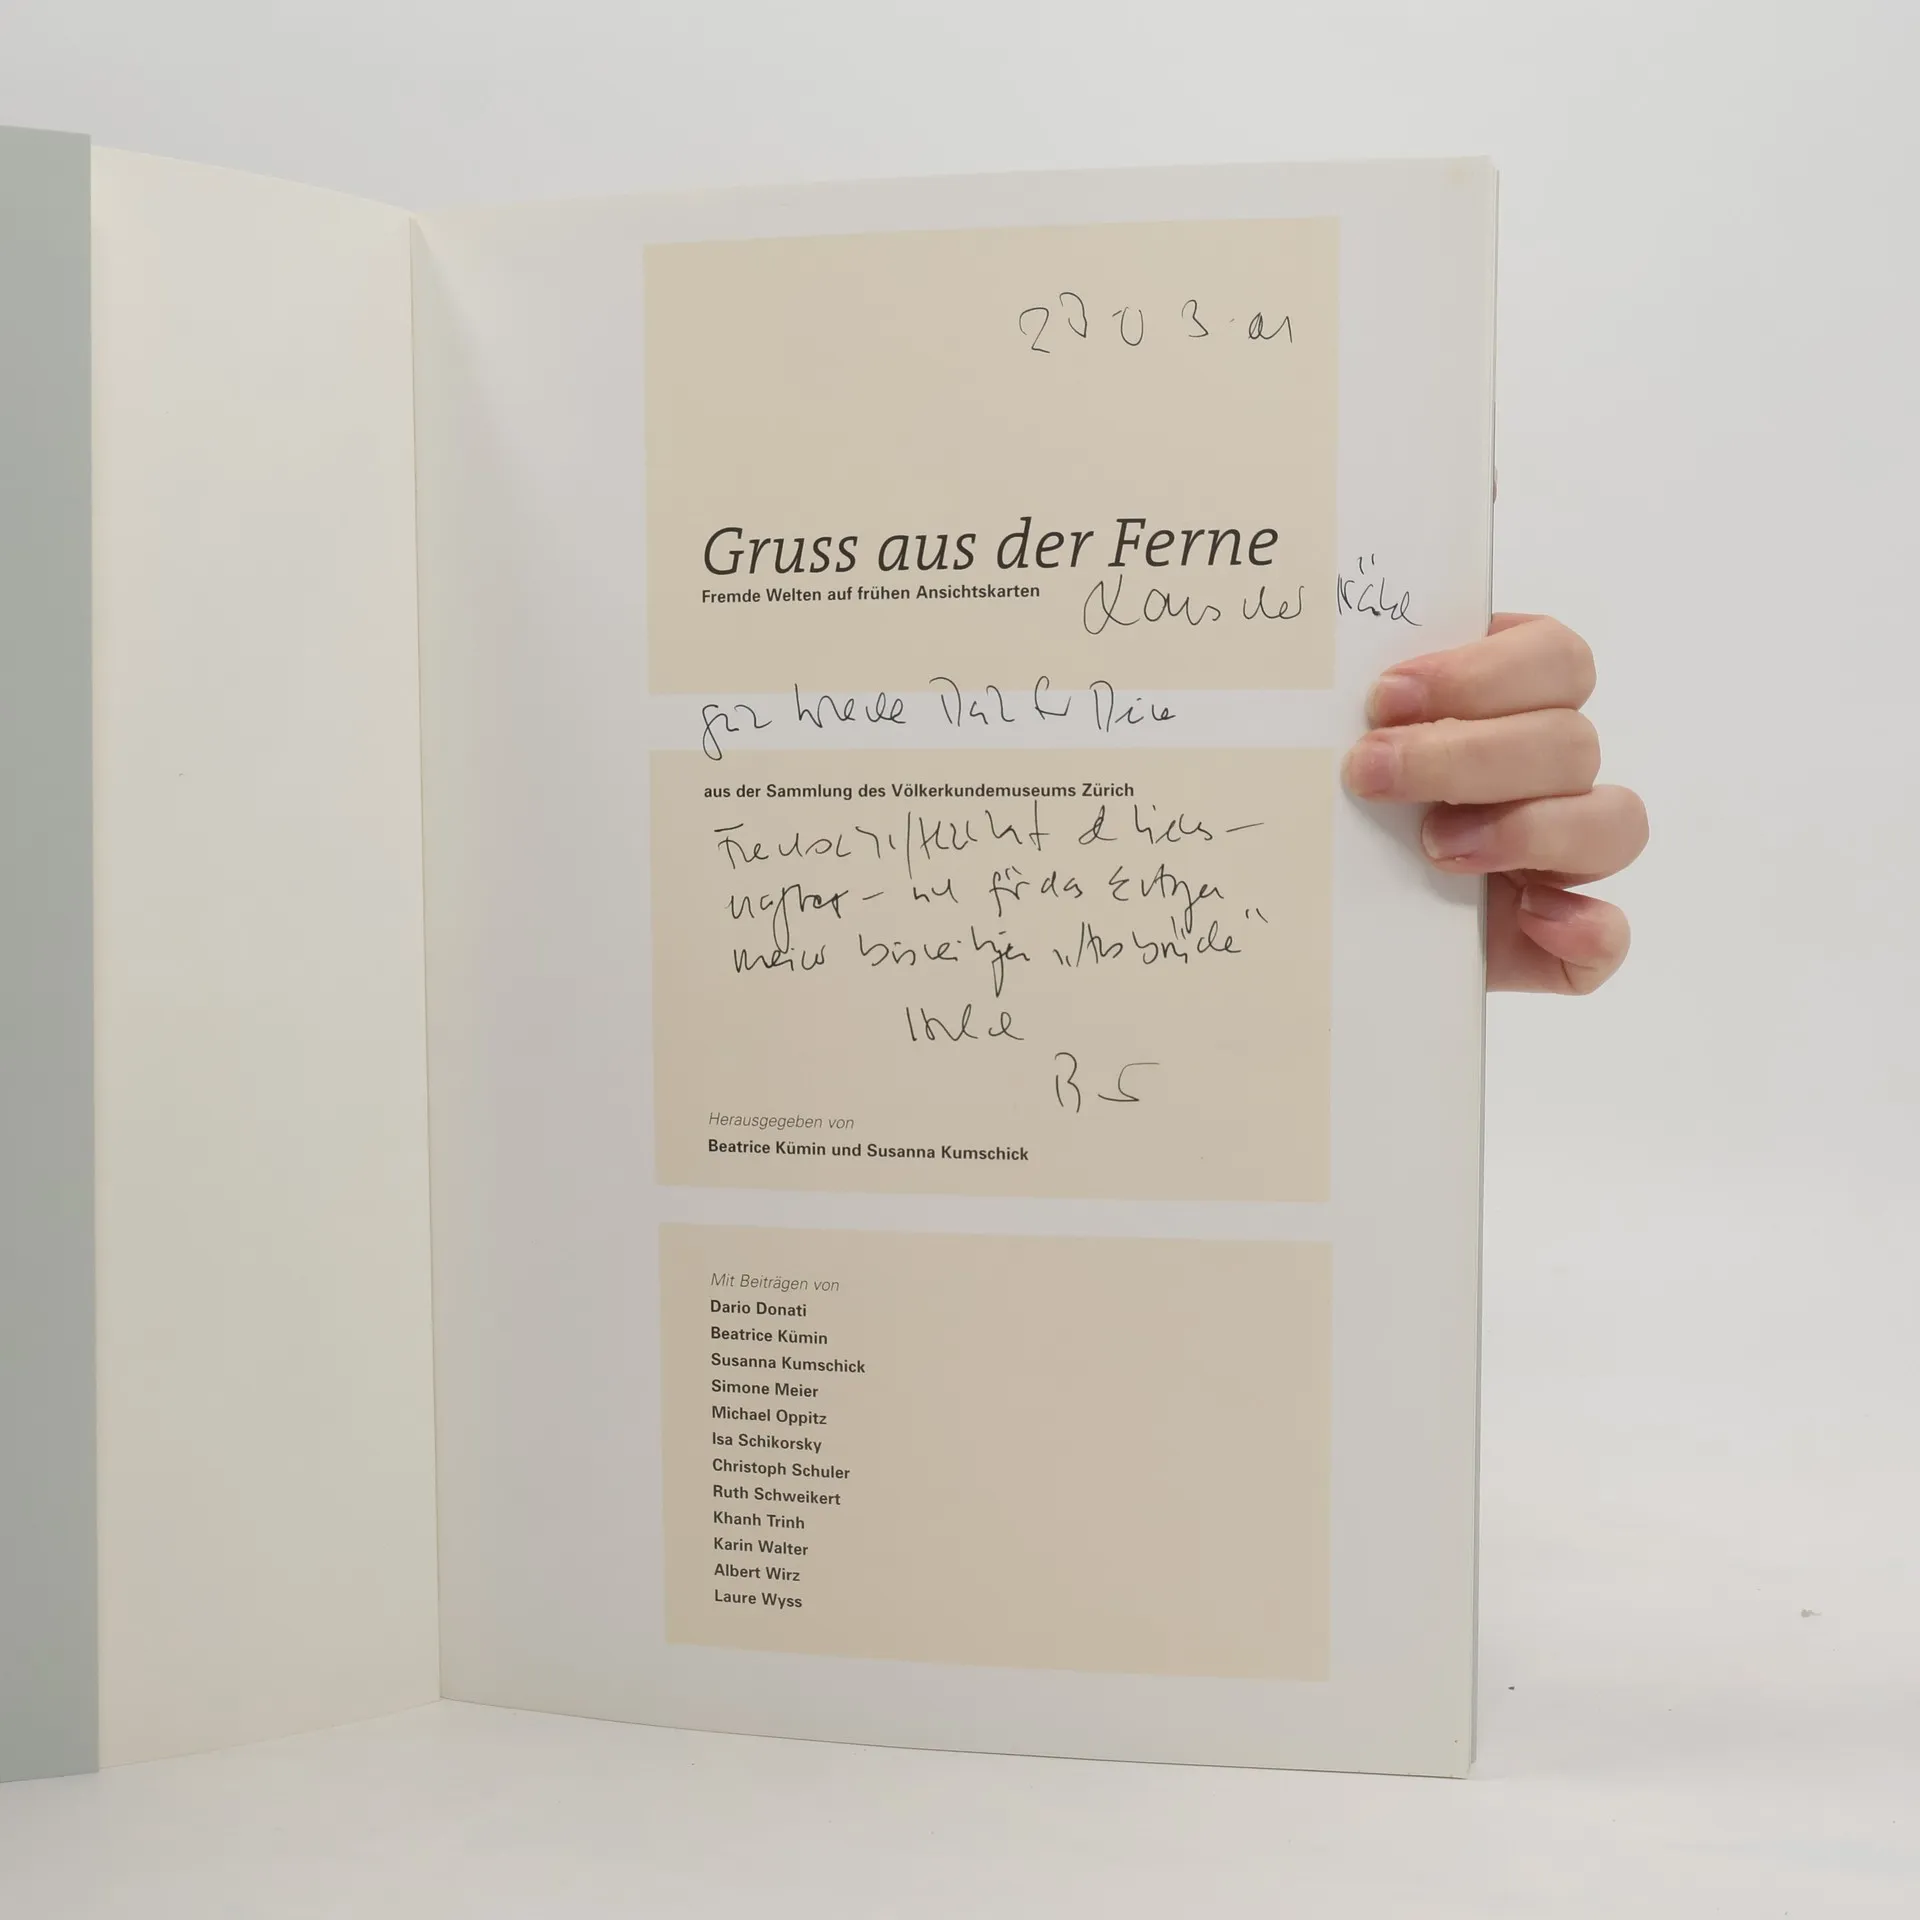 Gruss aus der Ferne
Fremde Welten auf frühen Ansichtskarten
& aus der Nähe
Dank für Deine
aus der Sammlung des Völkerkundemuseums Zürich
für das
meiner bisherigen „Ausbrüche“
B S
Herausgegeben von
Beatrice Kümin und Susanna Kumschick
Mit Beiträgen von
Dario Donati
Beatrice Kümin
Susanna Kumschick
Simone Meier
Michael Oppitz
Isa Schikorsky
Christoph Schuler
Ruth Schweikert
Khanh Trinh
Karin Walter
Albert Wirz
Laure Wyss